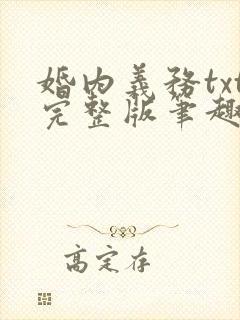 婚内義務txt
完整版筆趣
高定存